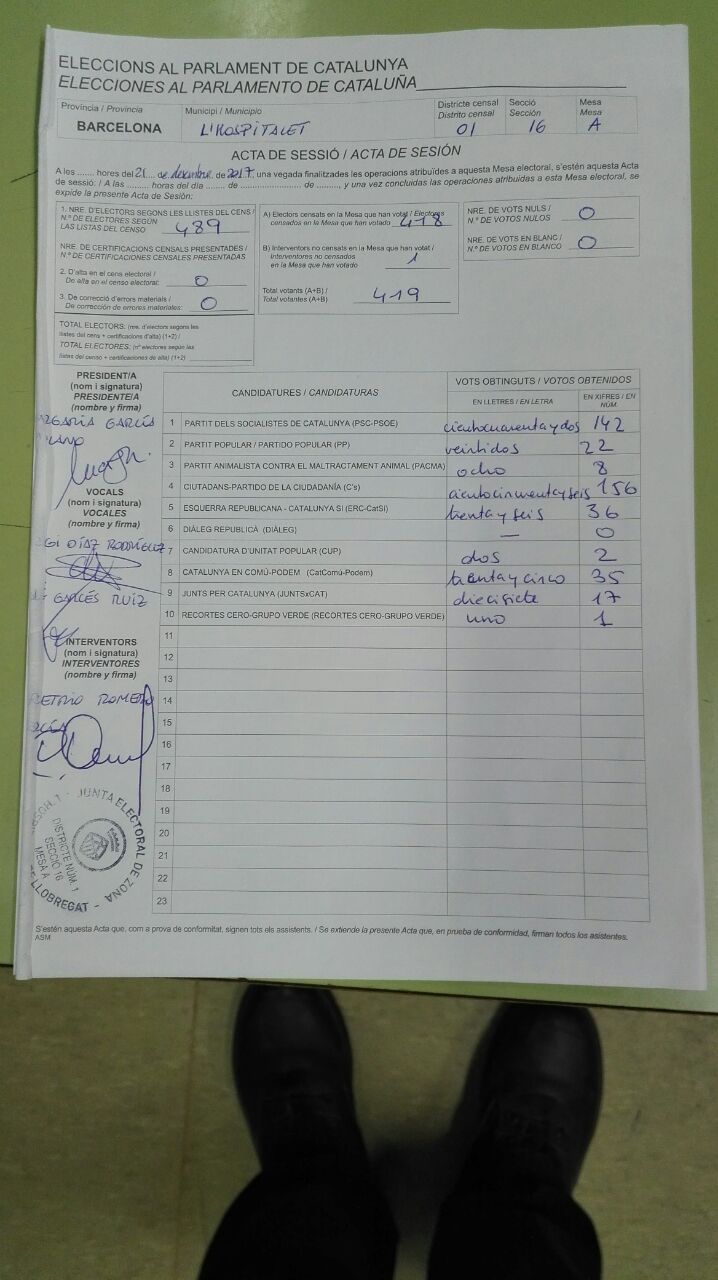 ELECCIONS AL PARLAMENT DE CATALUNYA
ELECCIONES AL PARLAMENTO DE CATALUÑA
Província / Provincia
BARCELONA
Municipi / Municipio
L'HOSPITALET
Districte censal
Distrito censal
01
Secció
Sección
16
Mesa
Mesa
A
ACTA DE SESSIÓ / ACTA DE SESIÓN
A les ........ hores del 21 ... de desembre de 2017, una vegada finalitzades les operacions atribuïdes a aquesta Mesa electoral, s'estén aquesta Acta
de sessió: / A las ........ horas del día ....... de ........................... de .........., y una vez concluidas las operaciones atribuidas a esta Mesa electoral, se
expide la presente Acta de Sesión:
1. NRE. D'ELECTORS SEGONS LES LLISTES DEL CENS /
N.º DE ELECTORES SEGÚN
LAS LISTAS DEL CENSO
489
NRE. DE CERTIFICACIONS CENSALS PRESENTADES /
N.º DE CERTIFICACIONES CENSALES PRESENTADAS
2. D'alta en el cens electoral /
De alta en el censo electoral:
0
3. De correcció d'errors materials /
De corrección de errores materiales:
0
TOTAL ELECTORS: (nre. d'electors segons les
llistes del cens + certificacions d'alta) (1+2) /
TOTAL ELECTORES: (nº electores según las
listas del censo + certificaciones de alta) (1+2)
A) Electors censats en la Mesa que han votat / Electores
censados en la Mesa que han votado
418
B) Interventors no censats en la Mesa que han votat /
Interventores no censados
en la Mesa que han votado
1
Total votants (A+B) /
Total votantes (A+B)
419
NRE. DE VOTS NULS /
N.º DE VOTOS NULOS
0
NRE. DE VOTS EN BLANC /
N.º DE VOTOS EN BLANCO
0
PRESIDENT/A
(nom i signatura)
PRESIDENTE/A
(nombre y firma)
GARCÍA
VOCALS
(nom i signatura)
VOCALES
(nombre y firma)
DÍAZ RODRÍGUEZ
GARCÉS RUIZ
INTERVENTORS
(nom i signatura)
INTERVENTORES
(nombre y firma)
ROMERO
CANDIDATURES / CANDIDATURAS
VOTS OBTINGUTS / VOTOS OBTENIDOS
EN LLETRES / EN LETRA
EN XIFRES / EN NÚM.
1 PARTIT DELS SOCIALISTES DE CATALUNYA (PSC-PSOE) cientocuarentaydos 142
2 PARTIT POPULAR / PARTIDO POPULAR (PP) veintidos 22
3 PARTIT ANIMALISTA CONTRA EL MALTRACTAMENT ANIMAL (PACMA) ocho 8
4 CIUTADANS-PARTIDO DE LA CIUDADANÍA (C's) cientocincuentayseis 156
5 ESQUERRA REPUBLICANA - CATALUNYA SÍ (ERC-CatSí) treinta y seis 36
6 DIÀLEG REPUBLICÀ (DIÀLEG) — 0
7 CANDIDATURA D'UNITAT POPULAR (CUP) dos 2
8 CATALUNYA EN COMÚ-PODEM (CatComú-Podem) treinta y cinco 35
9 JUNTS PER CATALUNYA (JUNTSxCAT) diecisiete 17
10 RECORTES CERO-GRUPO VERDE (RECORTES CERO-GRUPO VERDE) uno 1
11
12
13
14
15
16
17
18
19
20
21
22
23
JUNTA ELECTORAL DE ZONA
LLOBREGAT
DISTRICTE NÚM. 1
SECCIÓ 16
MESA A
S'estén aquesta Acta que, com a prova de conformitat, signen tots els assistents. / Se extiende la presente Acta que, en prueba de conformidad, firman todos los asistentes.
ASM